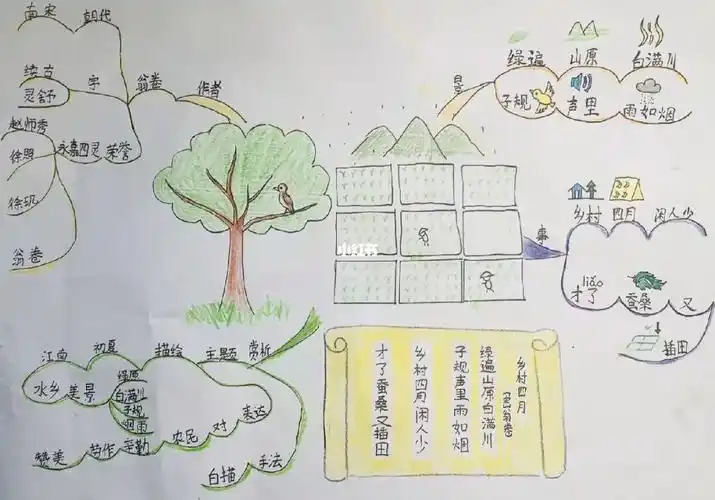 南宋 朝代
续古 字
灵舒
翁卷 作者
赵师秀
徐照 永嘉四灵 荣誉
徐玑
翁卷
景
绿遍 山原 白满川
子规 声里 雨如烟
事
乡村 四月 闲人少
liǎo
才了 蚕桑 又
插田
小红书
江南 初夏 描绘 主题 赏析
水乡 美景
绿原
白满川
子规
烟雨
赞美 劳作 辛勤 农民 对 表达
白描 手法
乡村四月
[宋]翁卷
绿遍山原白满川
子规声里雨如烟
乡村四月闲人少
才了蚕桑又插田